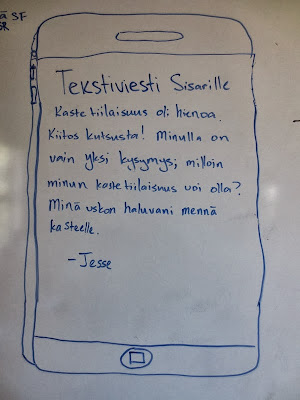 ä SF
SR
Tekstiviesti Sisarille
Kaste tiilaisuus oli hienoa.
Kiitos kutsusta! Minulla on
vain yksi kysymys; milloin
minun kaste tiilaisuus voi olla?
Minä uskon haluvani mennä
kasteelle.
-Jesse